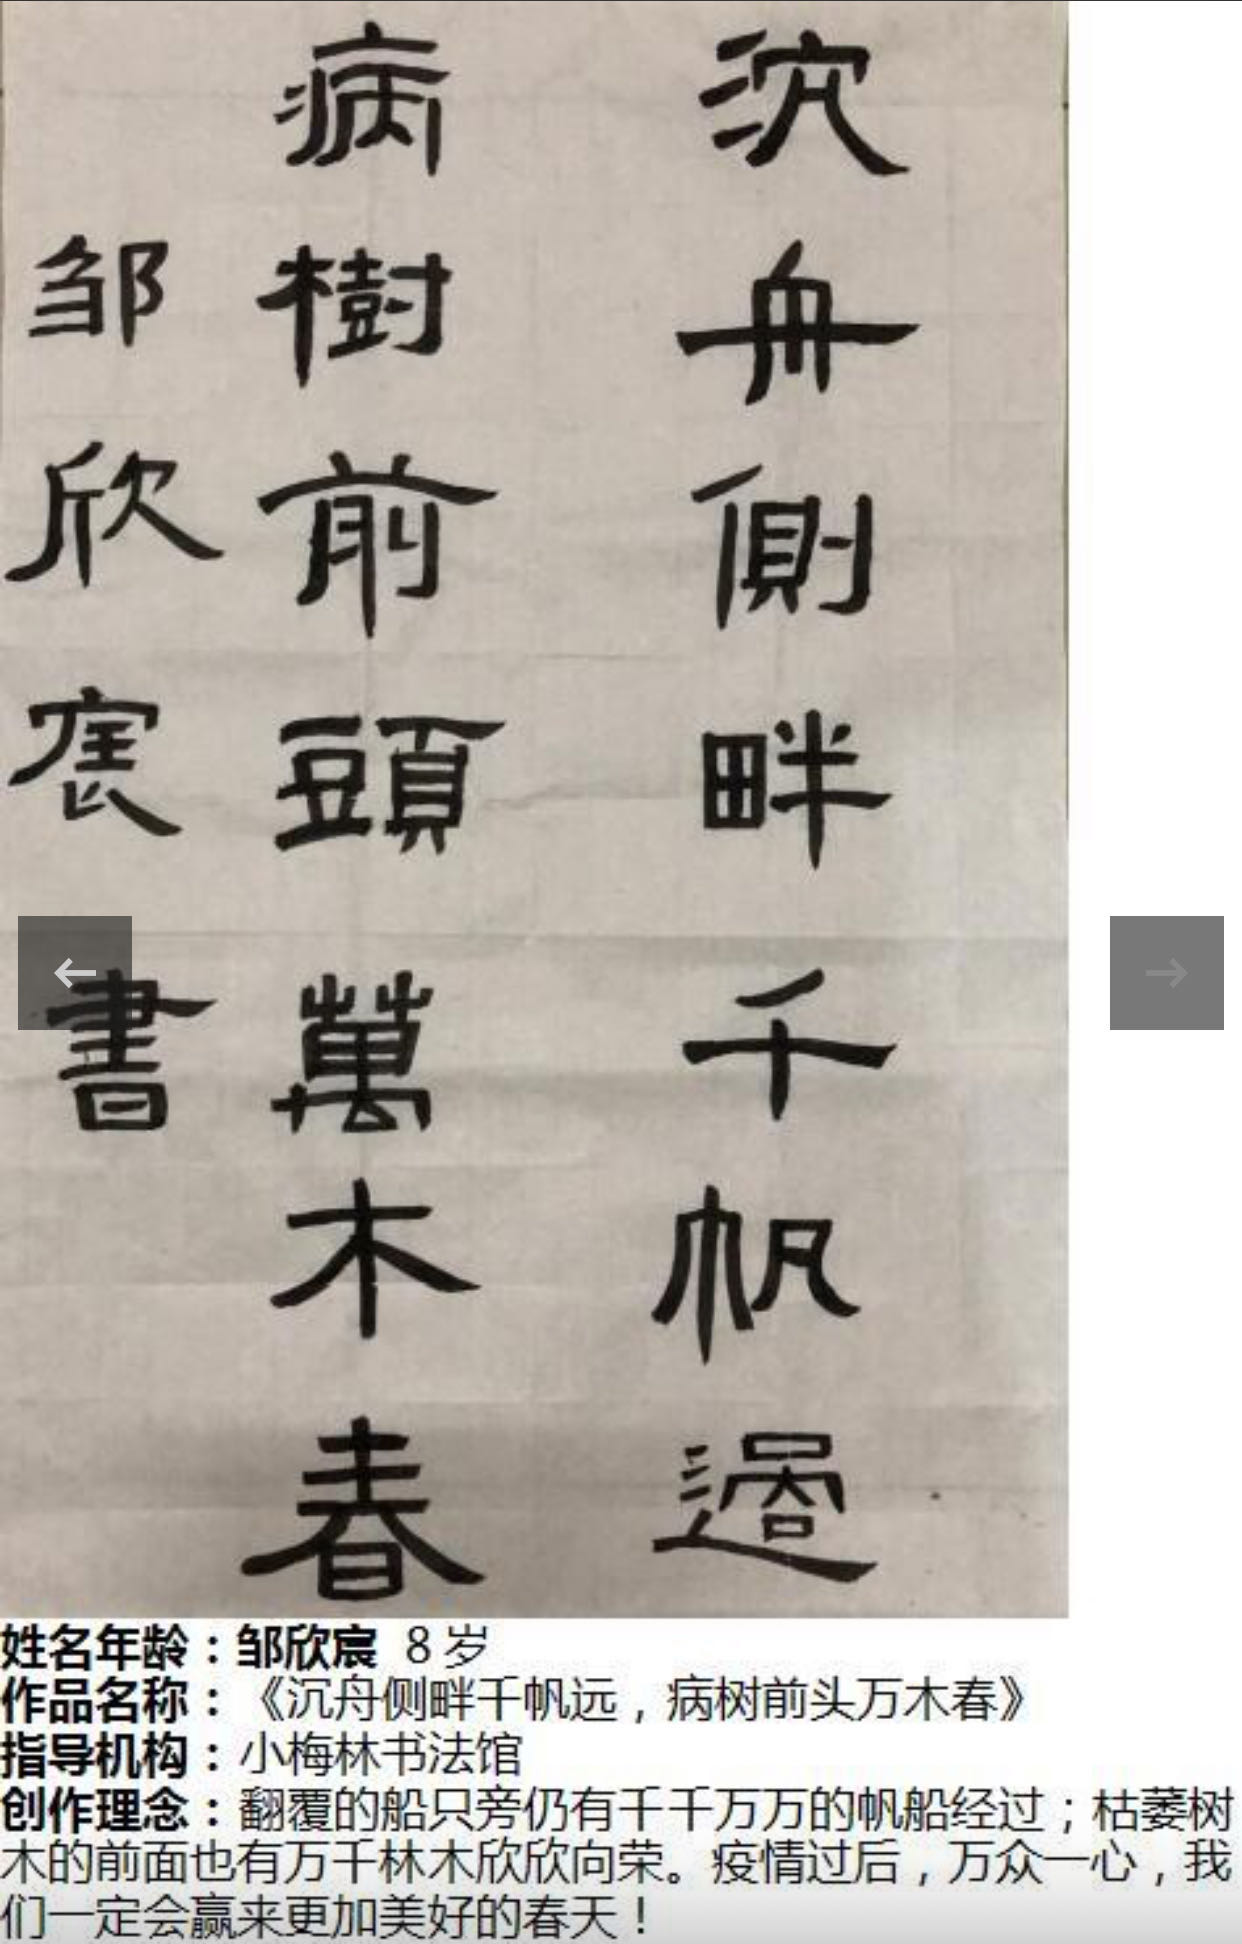 沉舟側畔千帆過
病樹前頭萬木春
邹欣宸書
姓名年龄：邹欣宸 8岁
作品名称：《沉舟侧畔千帆远，病树前头万木春》
指导机构：小梅林书法馆
创作理念：翻覆的船只旁仍有千千万万的帆船经过；枯萎树
木的前面也有万千林木欣欣向荣。疫情过后，万众一心，我
们一定会赢来更加美好的春天！